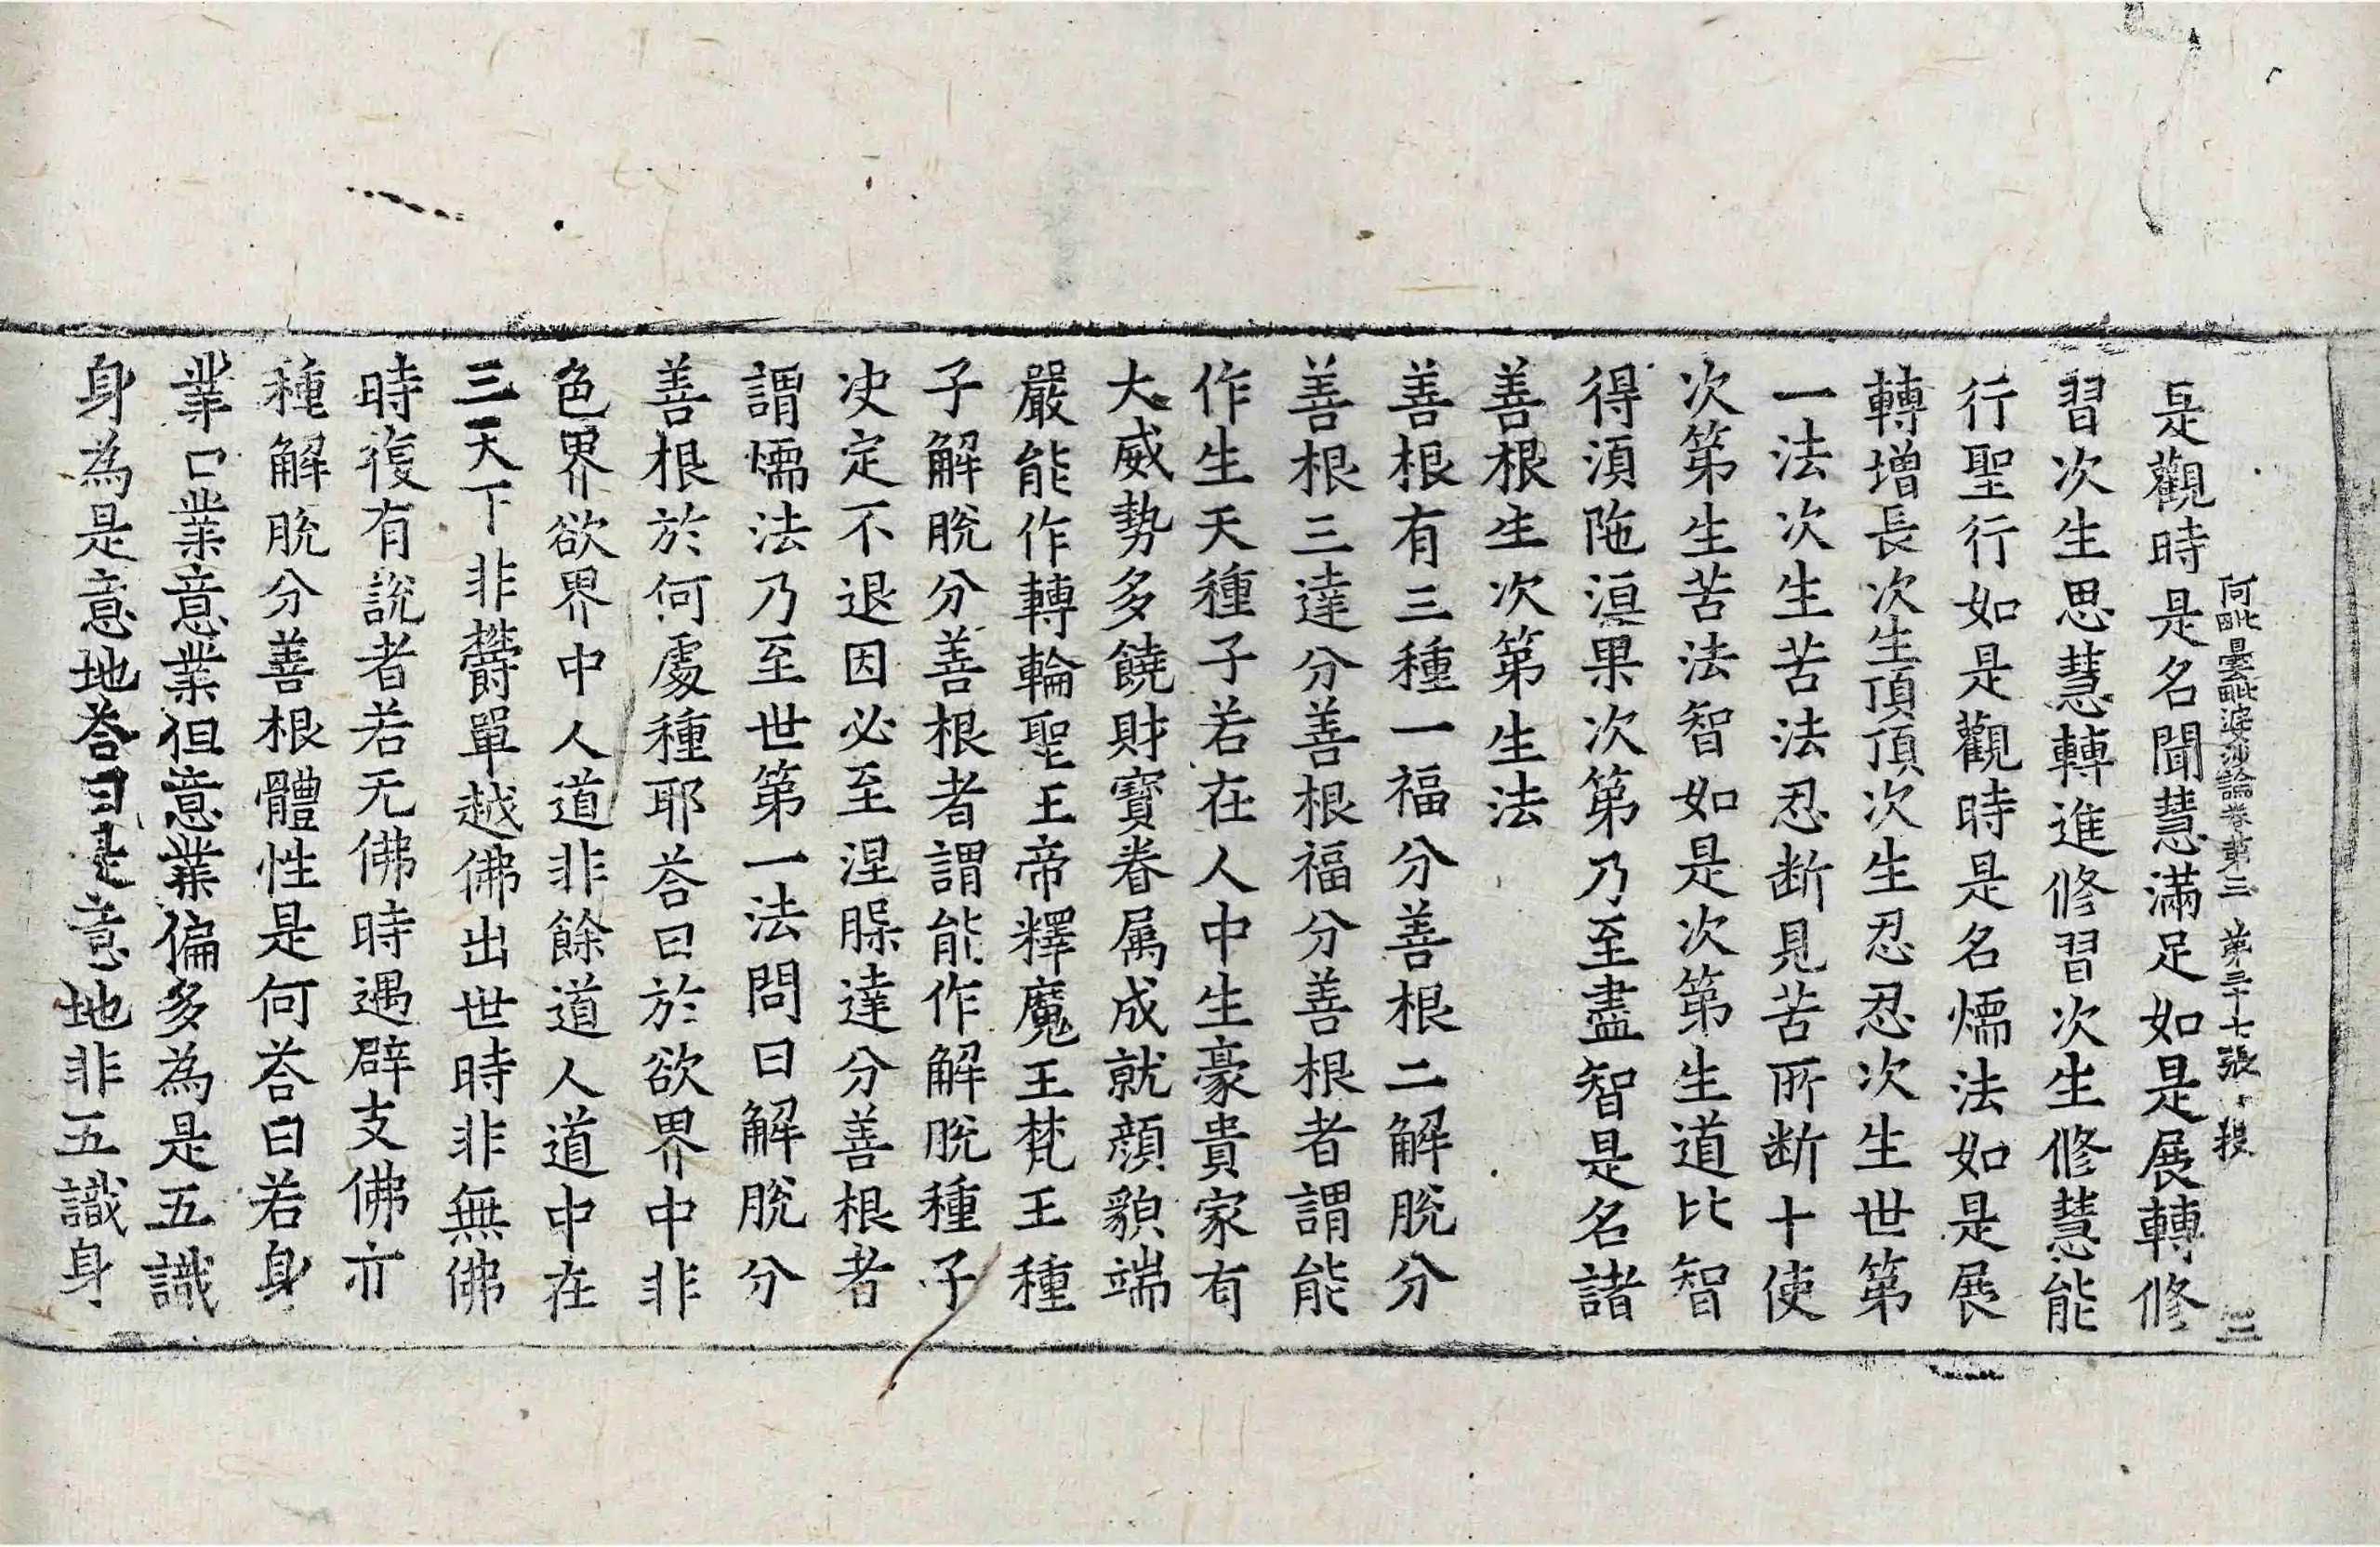 阿毗曇毗婆沙論卷第三 第三十七張 投
是觀時是名聞慧滿足如是展轉修
習次生思慧轉進修習次生修慧能
行聖行如是觀時是名煗法如是展
轉增長次生頂頂次生忍忍次生世第
一法次生苦法忍断見苦所断十使
次第生苦法智如是次第生道比智
得湏陁洹果次第乃至盡智是名諸
善根生次第生法
善根有三種一福分善根二解脫分
善根三達分善根福分善根者謂能
作生天種子若在人中生豪貴家有
大威勢多饒財寶眷属成就顔貌端
嚴能作轉輪聖王帝釋魔王梵王種
子解脫分善根者謂能作解脫種子
决定不退因必至涅槃達分善根者
謂煗法乃至世第一法問曰解脫分
善根於何處種耶荅曰於欲界中非
色界欲界中人道非餘道人道中在
三天下非欝單越佛出世時非無佛
時復有說者若无佛時遇辟支佛亦
種解脫分善根體性是何荅曰若身
業口業意業但意業偏多為是五識
身為是意地荅曰是意地非五識身